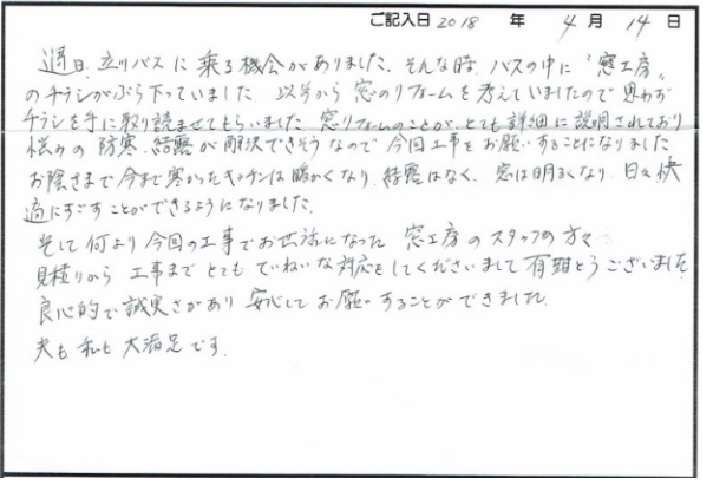 ご記入日 2018 年 4 月 14 日
過日、立川バスに乗る機会がありました。そんな時、バスの中に"窓工房"
のチラシがぶら下っていました。以前から窓のリフォームを考えていましたので思わず
チラシを手に取り読ませてもらいました。窓リフォームのことが、とても詳細に説明されており
悩みの防寒、結露が解決できそうなので今回工事をお願いすることになりました
お陰さまで今まで寒かったキッチンは暖かくなり、結露はなく、窓は明るくなり、日々快
適にすごすことができるようになりました。
そして何より今回の工事でお世話になった窓工房のスタッフの方々
見積りから工事までとてもていねいな対応をしてくださいまして有難とうございました。
良心的で誠実さがあり安心してお願いすることができました。
夫も私も大満足です。